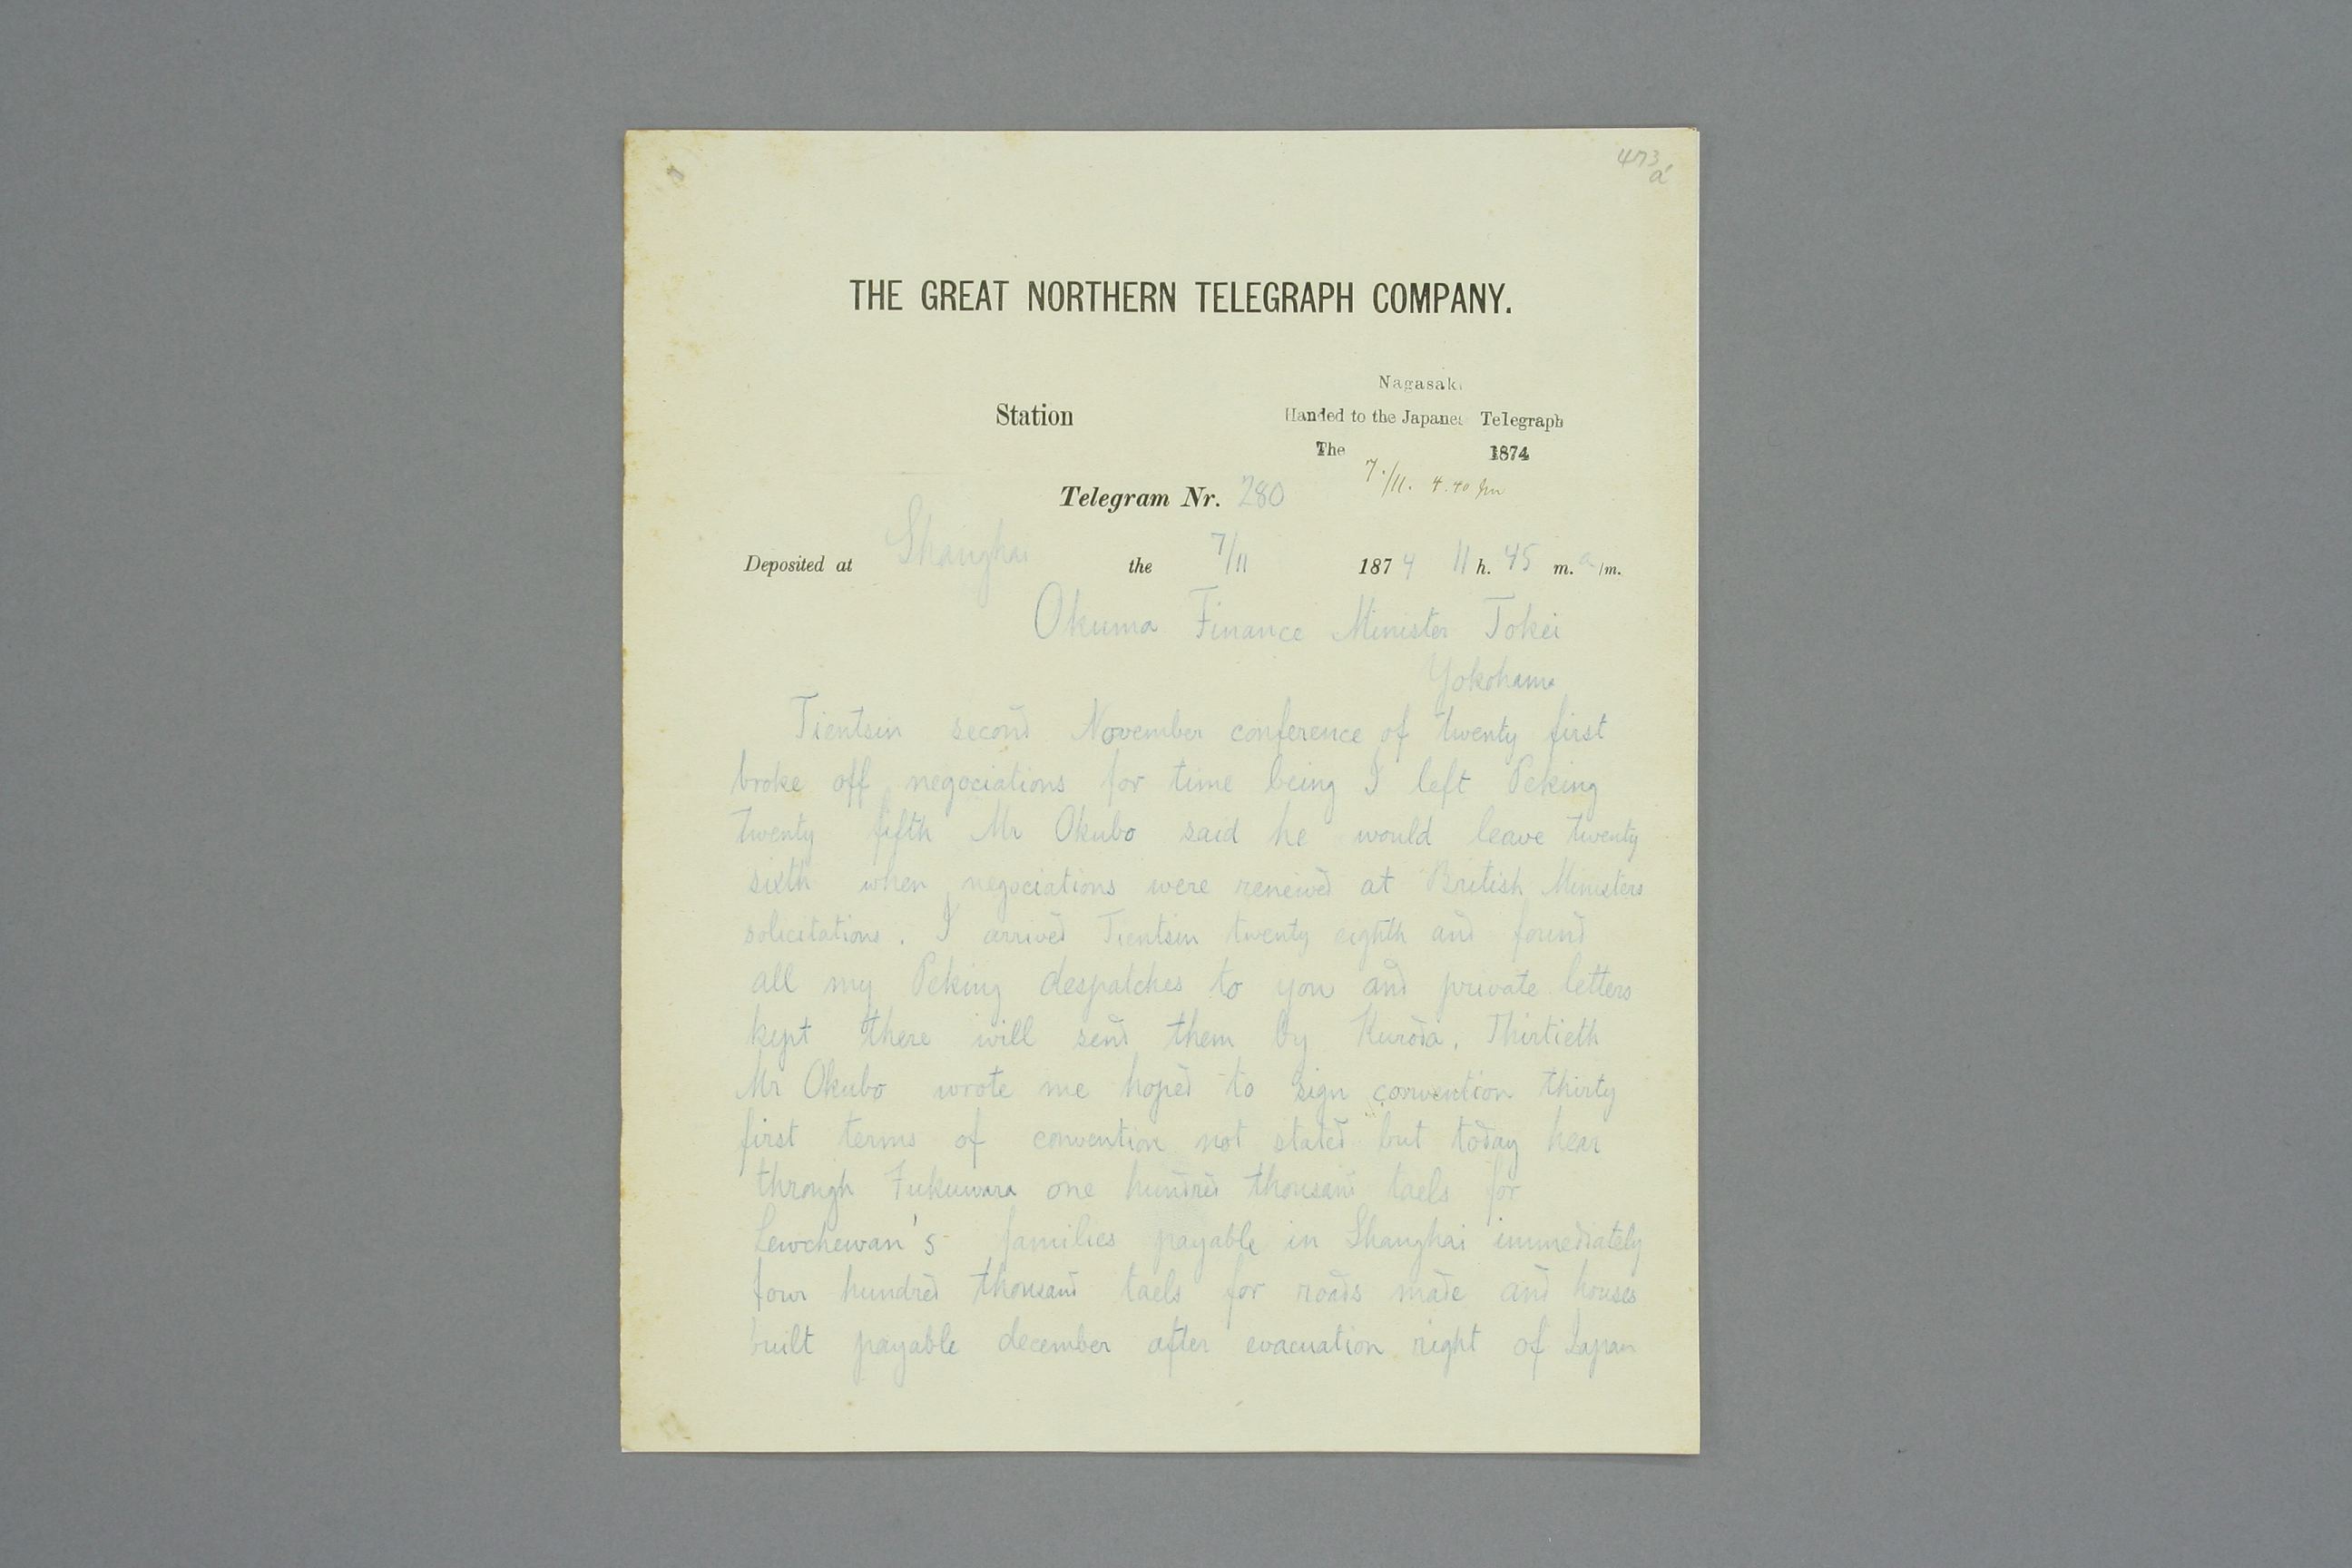 473
a
THE GREAT NORTHERN TELEGRAPH COMPANY.
Nagasaki
Station
Handed to the Japanes Telegraph
The 1874
7./11. 4.40 pm
Telegram Nr. 280
Deposited at Shanghai the 7/11 1874 11 h. 45 m. a/m.
Okuma Finance Minister Tokei
Yokohama
Tientsin second November conference of twenty first
broke off negociations for time being I left Peking
twenty fifth Mr Okubo said he would leave twenty
sixth when negociations were renewed at British Ministers
solicitations. I arrived Tientsin twenty eighth and found
all my Peking despatches to you and private letters
kept there will send them by Kuroda. Thirtieth
Mr Okubo wrote me hoped to sign convention thirty
first terms of convention not stated but today hear
through Fukuwara one hundred thousand taels for
Lewchewan's families payable in Shanghai immediately
four hundred thousand taels for roads made and houses
built payable december after evacuation right of Japan